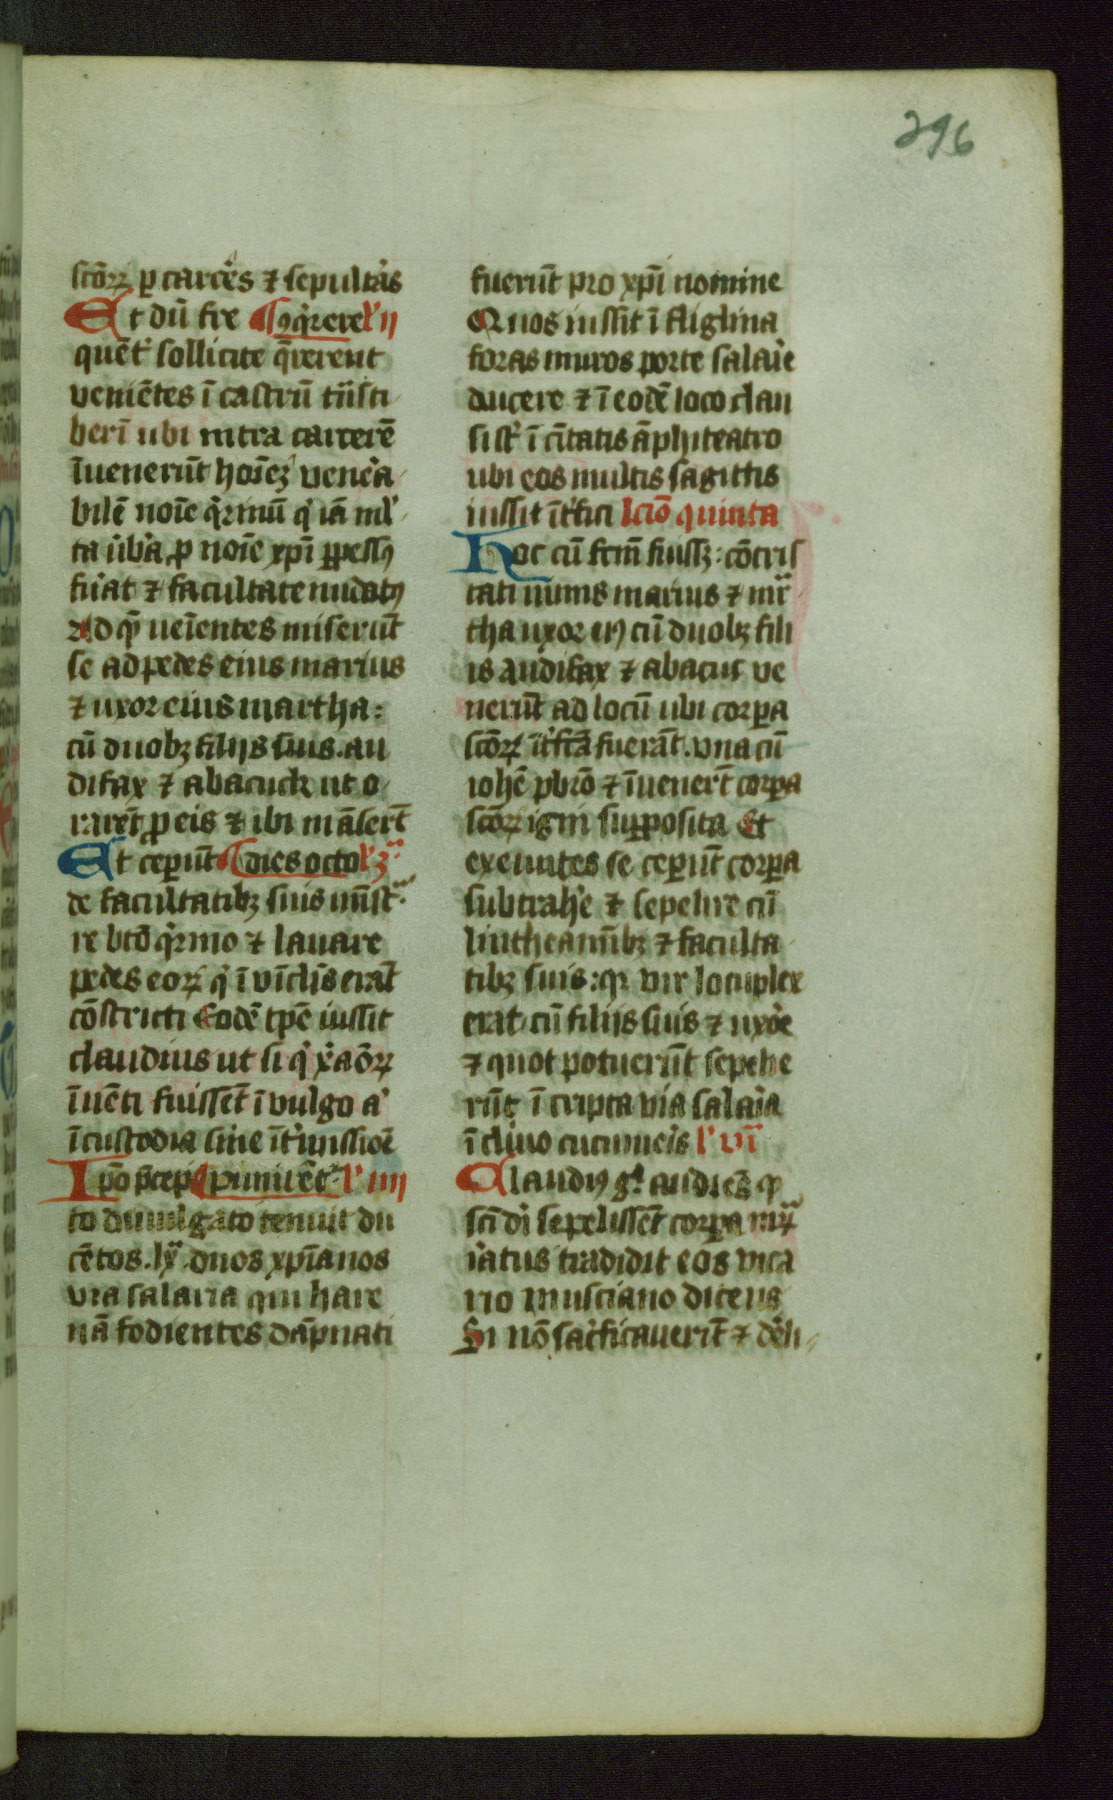 296
scōꝝ ꝑ carcēs ⁊ sepultᷓas
Et dū fre ¶ ꝯqͥrere lͦ ii
quēt᷑ sollicite q̄rerent
veniētes ī castrū tͥnsti
berī ubi intra carcerē
īuenerūt hoīeꝫ venera
bilē noīe qͥrinū qͥ iā ml᷑
ta ūba ꝓ noīe xp̄i ꝑpessꝰ
fuᷓat ⁊ facultate nudatꝰ
Ad qͣ veīentes miserūt
se ad pedes eius marius
⁊ uxor eius martha:
cū duobꝫ filijs suis au
difax ⁊ abacuck ut o
rarēt ꝓ eis ⁊ ibi māserᷓt
Et ceperūt ¶ dies octo lͦ 3ᷓ
de facultatibꝫ suis mīstᷓ
re btō qͥrino ⁊ lavare
pedes eoꝝ qͥ ī vīclīs erāt
cōstricti Eodē tp̄e iussit
claudius ut si qͥ xͥaōꝝ
īuēti fuissēt ī vulgo aͨ
ī custodia sine īt᷑missiōē
Ip̄o p̄cep ¶ punirēt᷑ lͦ iiii
to divulgato tenuit du
cētos .lxᷓ. duos xp̄ianos
via salaria qui hare
nā fodientes dāpnati
fuerūt pro xp̄i nomine
Quos iussit ī figlina
foras muros porte salarᷓie
ducere ⁊ ī eodē loco clau
sistᷓ ī cīitatis āphiteatro
ubi eos multis sagittis
iussit īt᷑fici lcīo quinta
Hoc cū fcm̄ fuissꝫ: cōtris
tati nimis marius ⁊ mrᷓ
tha uxor eiꝰ cū duobꝫ fili
is audifax ⁊ abacuc ve
nerūt ad locū ubi corꝑa
scōꝝ īt᷑fc̄a fuerāt. una cū
iohē pbrō ⁊ īuenerᷓt corꝑa
scōꝝ igni supposita Et
exeuntes se ceperūt corꝑa
subtrahᷓe ⁊ sepelire cū
lintheamībꝫ ⁊ faculta
tibꝫ suis: qꝛ vir locuplex
erat cū filijs suis ⁊ uxorᷓe
⁊ quot potuerūt sepelie
rūt ī cripta via salarᷓia
ī clivo cucumeris lͦ viͣ
Claudiꝰ gͦ audiēs qꝫ
scī dī sepelissēt corꝑa mrᷓꝝ
iratus tradidit eos vica
rio musciano dicens
Si nō sacᷓficaverīt ⁊ dēli